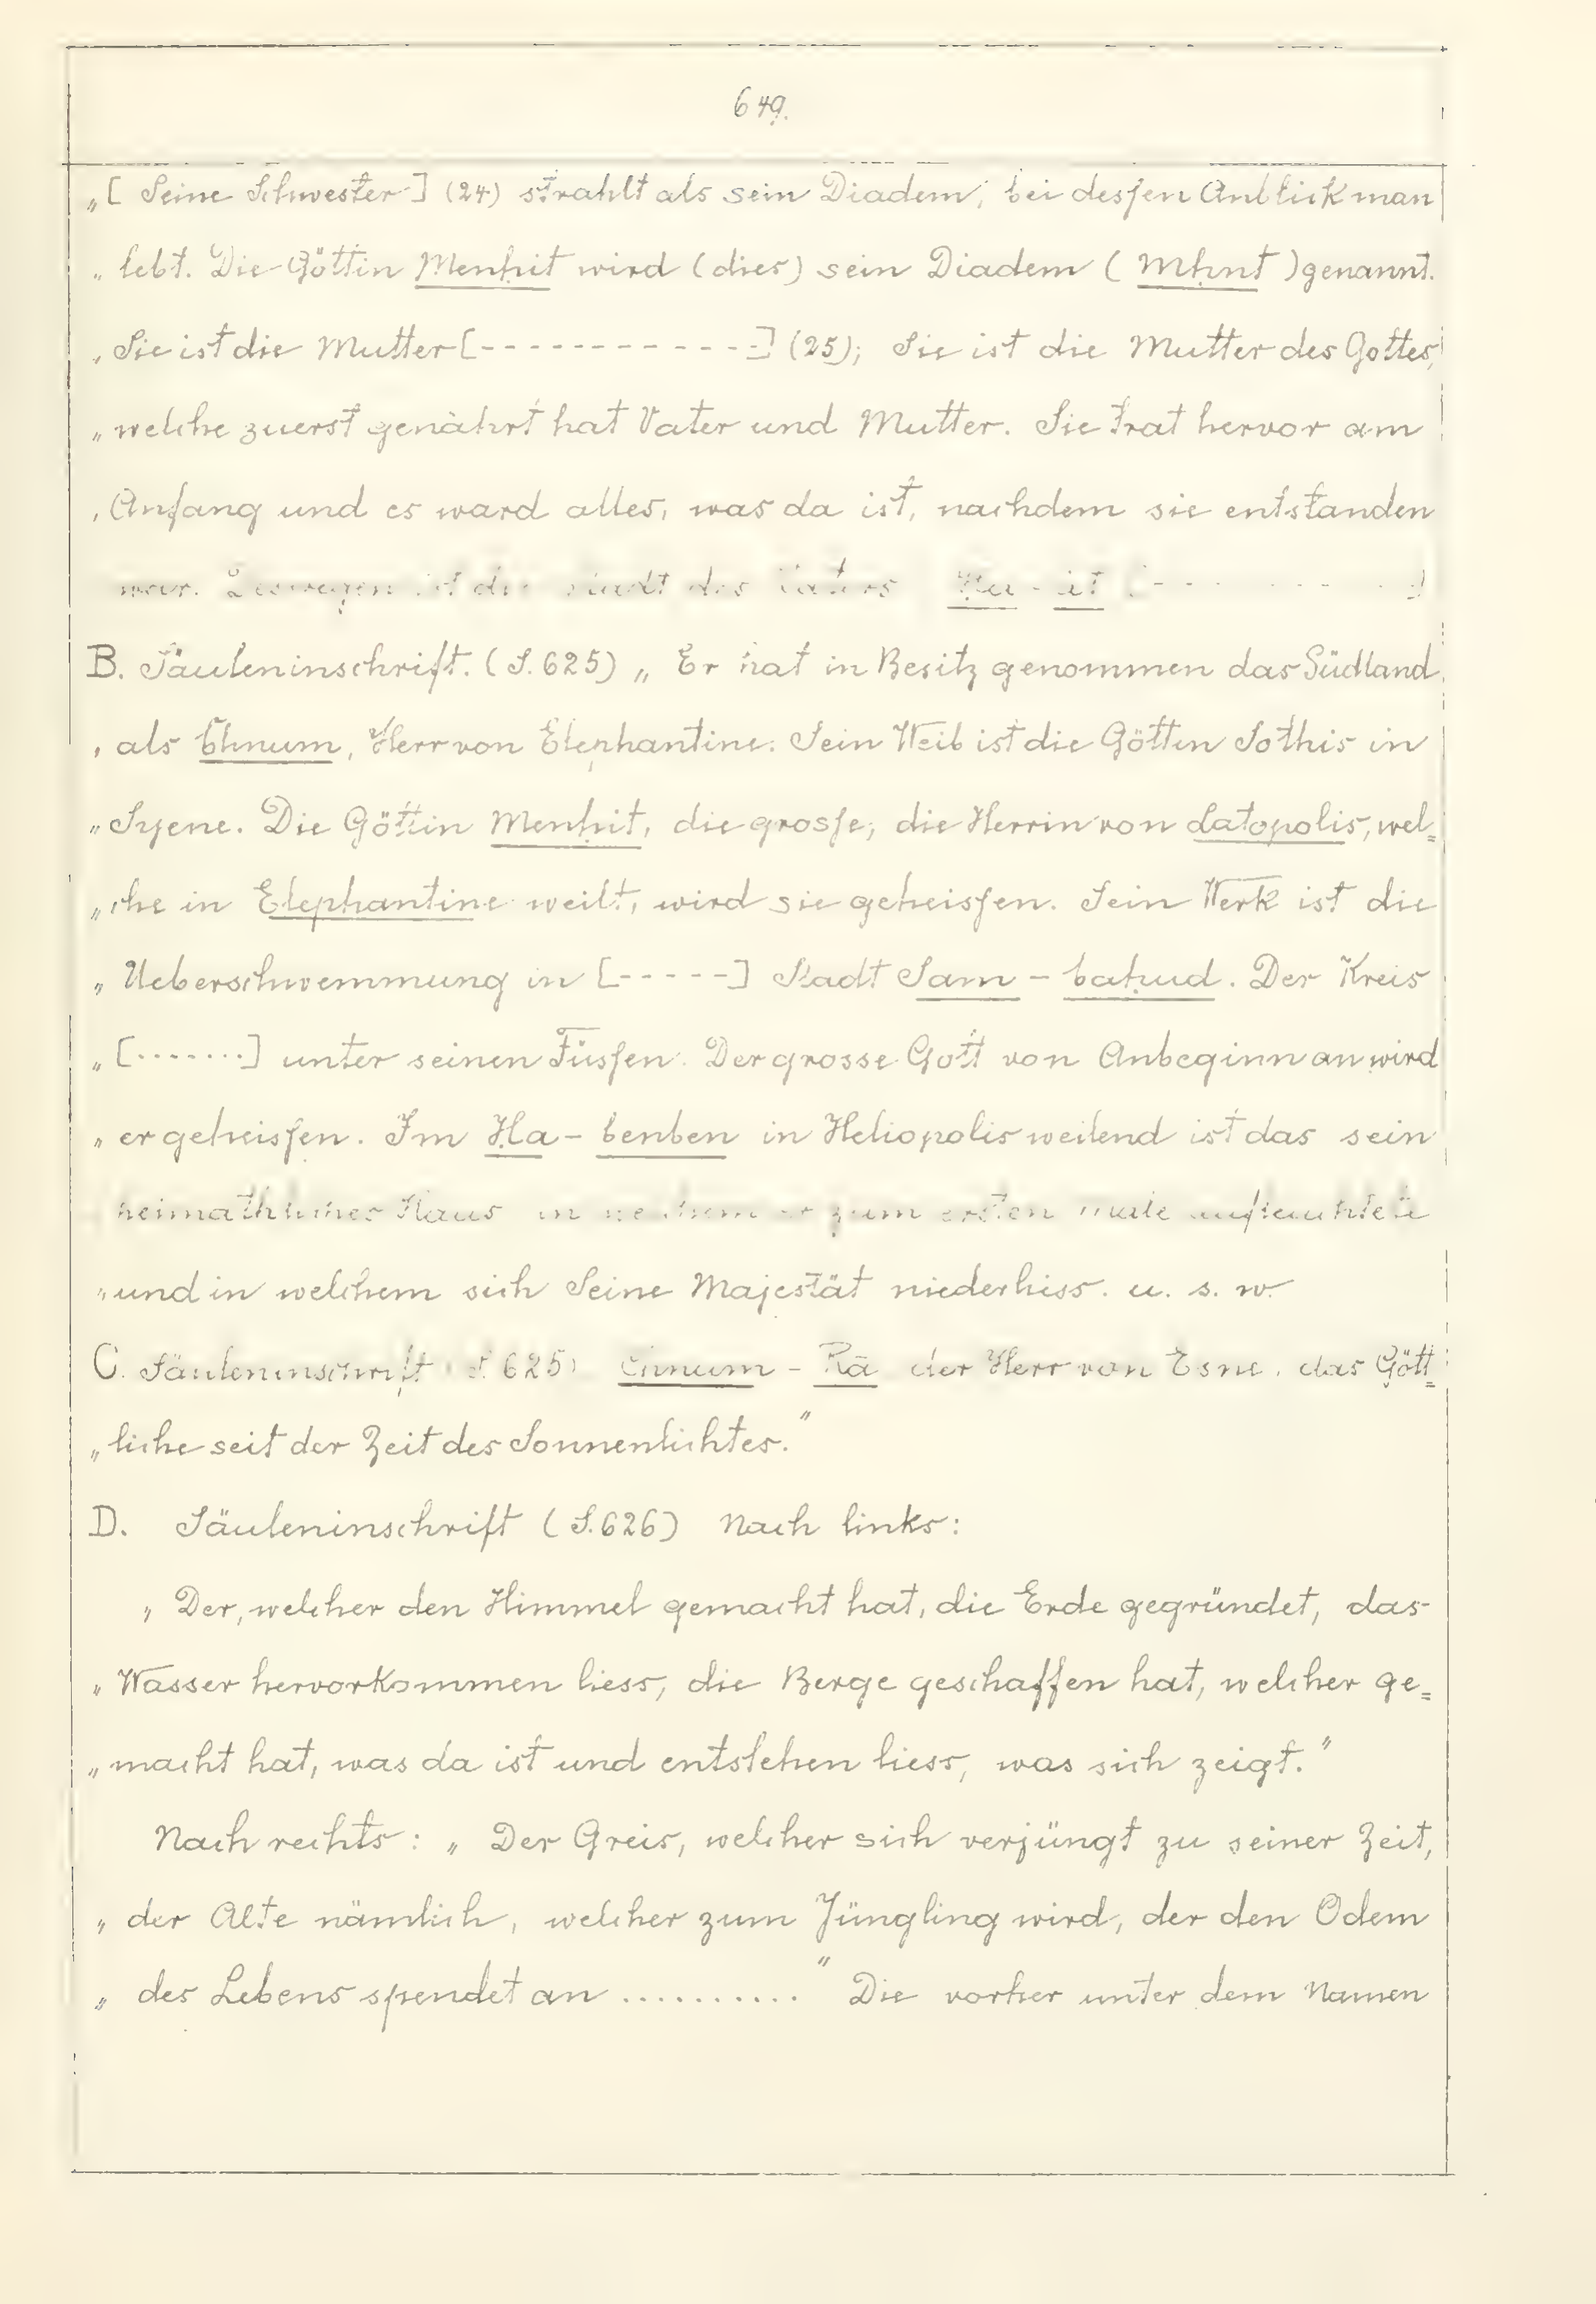 649.
„[ Seine Schwester ] (24) strahlt als sein Diadem, bei dessen Anblick man
„ lebt. Die Göttin Menḥit wird (dies) sein Diadem ( Mḥnt ) genannt.
„ Sie ist die Mutter [------------] (25); Sie ist die Mutter des Gottes,
„ welche zuerst genährt hat Vater und Mutter. Sie trat hervor am
„ Anfang und es ward alles, was da ist, nachdem sie entstanden
war. Deswegen ist die Stadt des Vaters Ḥa - it [- - - - - - -]
B. Säuleninschrift. (S. 625) „ Er hat in Besitz genommen das Südland
„ als Chnum, Herr von Elephantine. Sein Weib ist die Göttin Sothis in
„ Syene. Die Göttin Menḥit, die grosse, die Herrin von Latopolis, wel=
„ che in Elephantine weilt, wird sie geheissen. Sein Werk ist die
„ Ueberschwemmung in [-----] Stadt Sam - baḥud. Der Kreis
„ [.......] unter seinen Füssen. Der grosse Gott von Anbeginn an wird
„ er geheissen. Im Ḥa - benben in Heliopolis weilend ist das sein
heimathliches Haus in welchem er zum ersten Male aufleuchtete
„ und in welchem sich Seine Majestät niederliess. u. s. w.
C. Säuleninschrift (S. 625) Chnum - Rā der Herr von Esne, das Gött=
„ liche seit der Zeit des Sonnenlichtes.“
D. Säuleninschrift (S. 626) Nach links:
„ Der, welcher den Himmel gemacht hat, die Erde gegründet, das
„ Wasser hervorkommen liess, die Berge geschaffen hat, welcher ge=
„ macht hat, was da ist und entstehen liess, was sich zeigt.“
Nach rechts: „ Der Greis, welcher sich verjüngt zu seiner Zeit,
„ der Alte nämlich, welcher zum Jüngling wird, der den Odem
„ des Lebens spendet an ..........“ Die vorher unter dem Namen